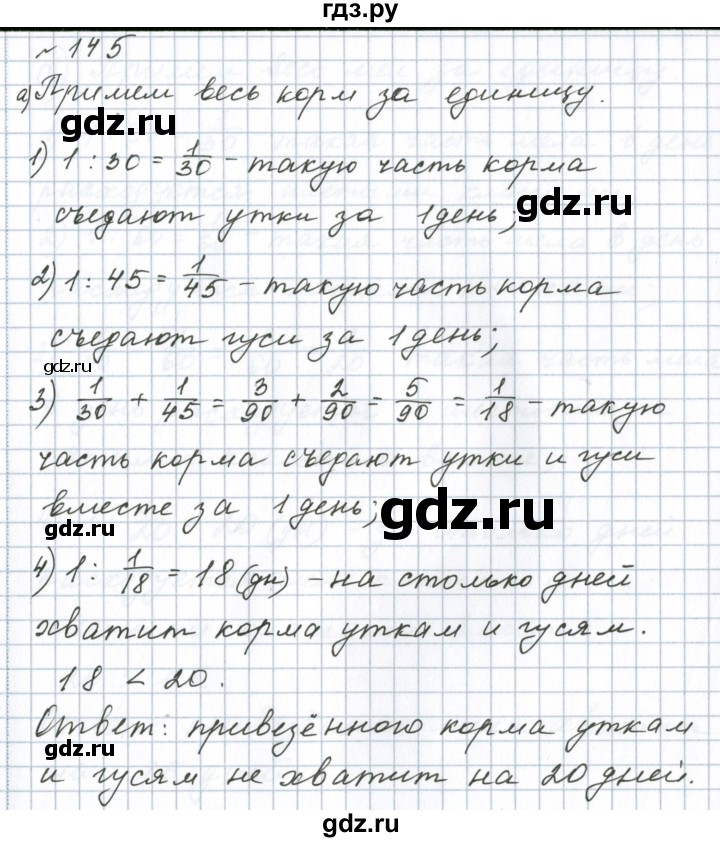 гдз.ру
№ 145
а) Примем весь корм за единицу.
gdz.ru
1) 1 : 30 = 1/30 – такую часть корма
съедают утки за 1 день;
gdz.ru
2) 1 : 45 = 1/45 – такую часть корма
съедают гуси за 1 день;
gdz.ru
3) 1/30 + 1/45 = 3/90 + 2/90 = 5/90 = 1/18 – такую
часть корма съедают утки и гуси
вместе за 1 день;
gdz.ru
gdz.ru
4) 1 : 1/18 = 18 (дн) – на столько дней
хватит корма уткам и гусям.
18 < 20.
Ответ: привезённого корма уткам
gdz.ru
и гусям не хватит на 20 дней.
gdz.ru